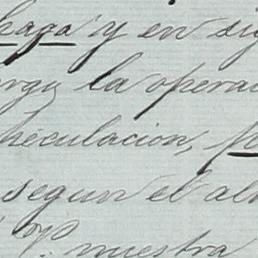 haga y en
la opera
peculacion,
segun el al
nuestra